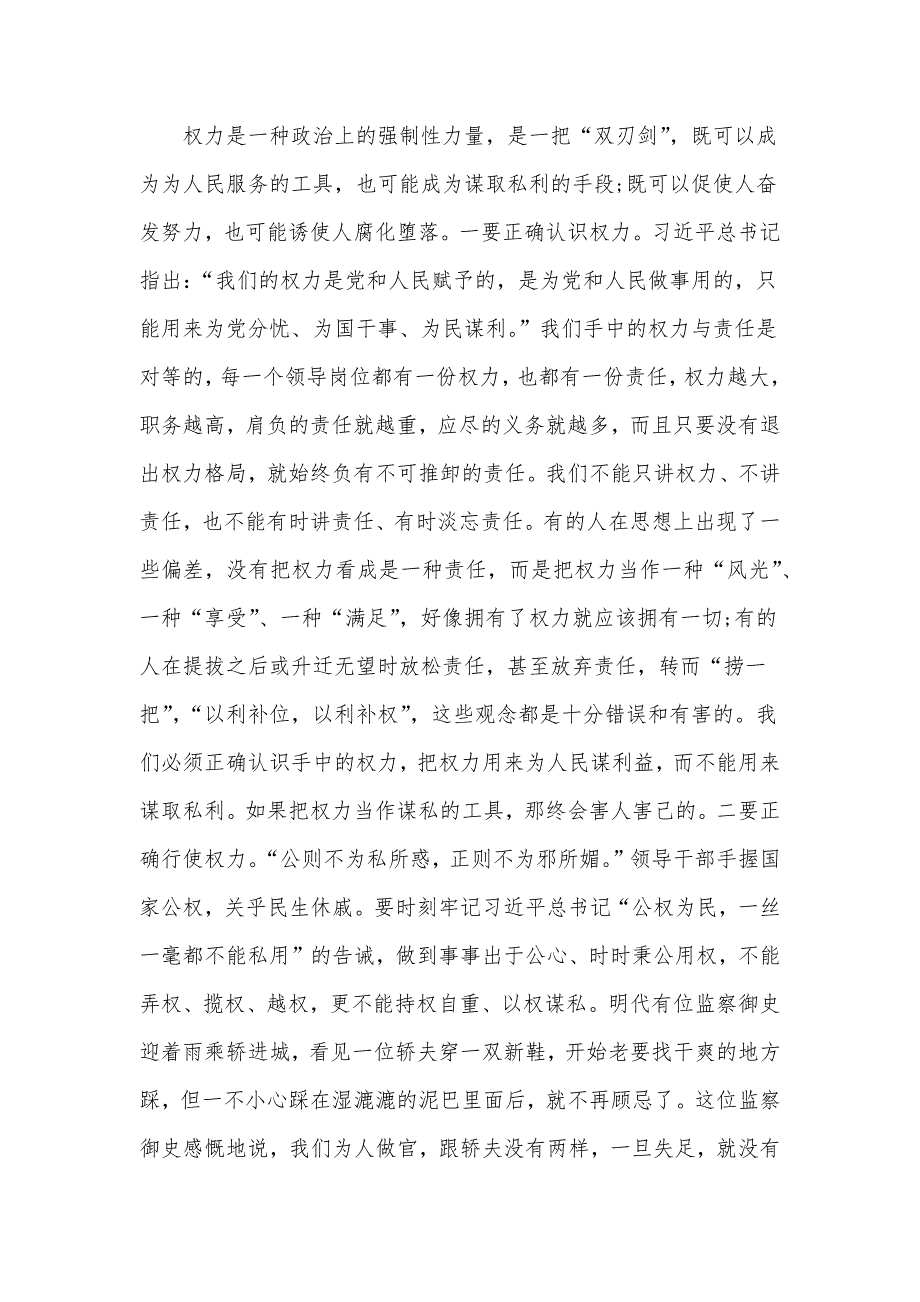 权力是一种政治上的强制性力量，是一把“双刃剑”，既可以成
为为人民服务的工具，也可能成为谋取私利的手段;既可以促使人奋
发努力，也可能诱使人腐化堕落。一要正确认识权力。习近平总书记
指出：“我们的权力是党和人民赋予的，是为党和人民做事用的，只
能用来为党分忧、为国干事、为民谋利。”我们手中的权力与责任是
对等的，每一个领导岗位都有一份权力，也都有一份责任，权力越大，
职务越高，肩负的责任就越重，应尽的义务就越多，而且只要没有退
出权力格局，就始终负有不可推卸的责任。我们不能只讲权力、不讲
责任，也不能有时讲责任、有时淡忘责任。有的人在思想上出现了一
些偏差，没有把权力看成是一种责任，而是把权力当作一种“风光”、
一种“享受”、一种“满足”，好像拥有了权力就应该拥有一切;有的
人在提拔之后或升迁无望时放松责任，甚至放弃责任，转而“捞一
把”，“以利补位，以利补权”，这些观念都是十分错误和有害的。我
们必须正确认识手中的权力，把权力用来为人民谋利益，而不能用来
谋取私利。如果把权力当作谋私的工具，那终会害人害己的。二要正
确行使权力。“公则不为私所惑，正则不为邪所媚。”领导干部手握国
家公权，关乎民生休戚。要时刻牢记习近平总书记“公权为民，一丝
一毫都不能私用”的告诫，做到事事出于公心、时时秉公用权，不能
弄权、揽权、越权，更不能持权自重、以权谋私。明代有位监察御史
迎着雨乘轿进城，看见一位轿夫穿一双新鞋，开始老要找干爽的地方
踩，但一不小心踩在湿漉漉的泥巴里面后，就不再顾忌了。这位监察
御史感慨地说，我们为人做官，跟轿夫没有两样，一旦失足，就没有